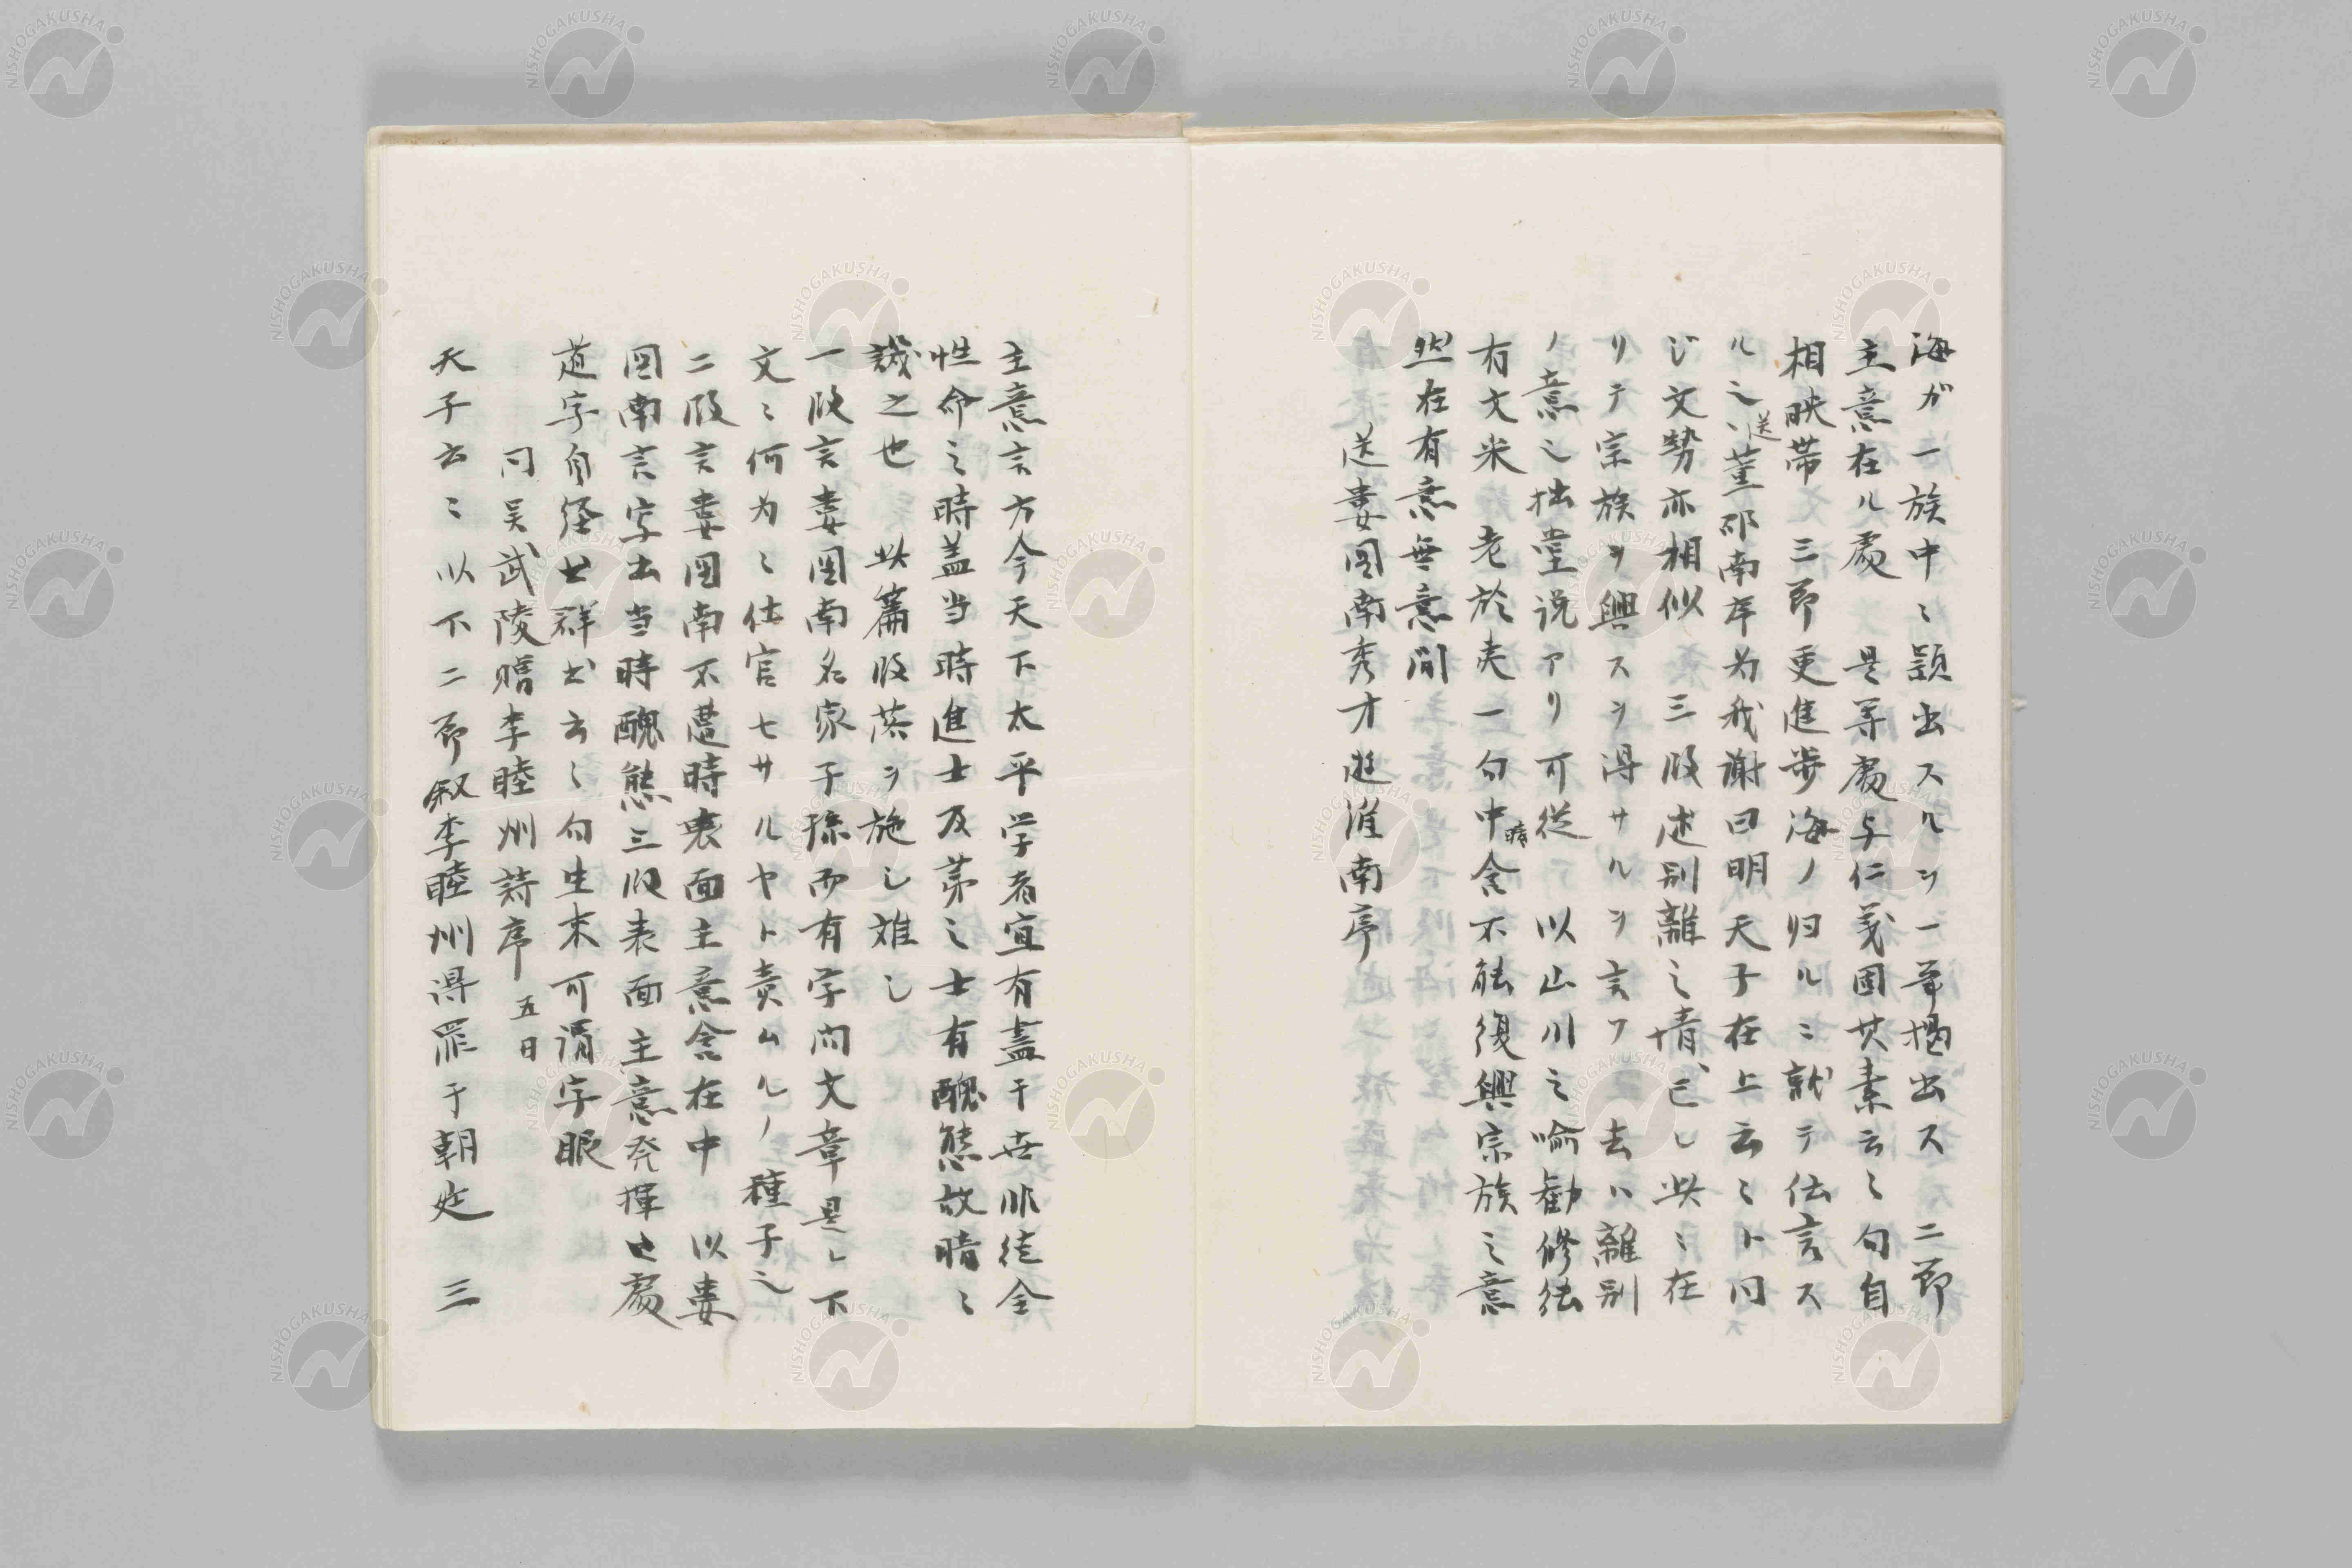 海ガ一族中ニ顕出スルヲ一筆提出ス　二節
主意在ル處　是等處与仁義固其素云々句自
相映帯　三節更進歩海ノ帰ルニ就テ伝言ス
ル也、送董邵南序為我謝曰明天子在上云々ト同
ジ文勢亦相似　三段述別離之情、已ニ此ニ在
リテ宗族ヲ興スヲ得サルヲ言フ　去ハ離別
ノ意也拙堂説アリ可従　以山川之喩勧修徳
有文采　老於夫一句中暗含不能復興宗族之意
然在有意無意間
送婁図南秀才遊淮南序
主意言方今天下太平学者宜有益于世非徒全
性命之時盖当時進士及第之士有醜態故暗ニ
譏之也　此篇段落ヲ施シ難シ
一段言婁図南名家子孫而有学問文章是レ下
文ニ何為ニ仕官セサルヤト責ムルノ種子也
二段言婁図南不遭時裏面主意含在中　以婁
図南言字出当時醜態三段表面主意発揮此處
道字自経世群世云々句生来可謂字眼
同呉武陵贈李睦州詩序　五日
天子云々以下二節叙李睦州得罪于朝廷　三